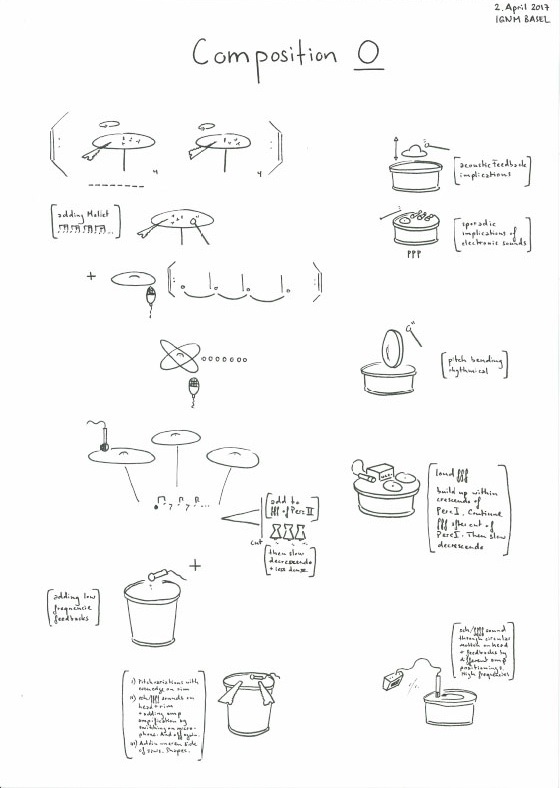 2. April 2017
IGNM BASEL
Composition O
acoustic Feedback
implications
adding Mallet
sporadic
implications of
electronic sounds
+
pitch bending
rhythmical
loud fff
build up within
crescendo of
Perc I. Continue
fff after cut of
Perc I. Then slow
decrescendo
add to
fff of Perc II
cut
then slow
decrescendo
+ less dense
+
adding low
frequencie
feedbacks
sch/ffff sound
through circular
motion on head
+ feedbacks by
different amp
positionings.
High frequencies
I) Pitch variations with
on rim
II) sch/fff sounds on
head + rim
+ adding amp
amplification by
switching on micro-
phone. And off again.
III) Adding uneven side
of Shapes.